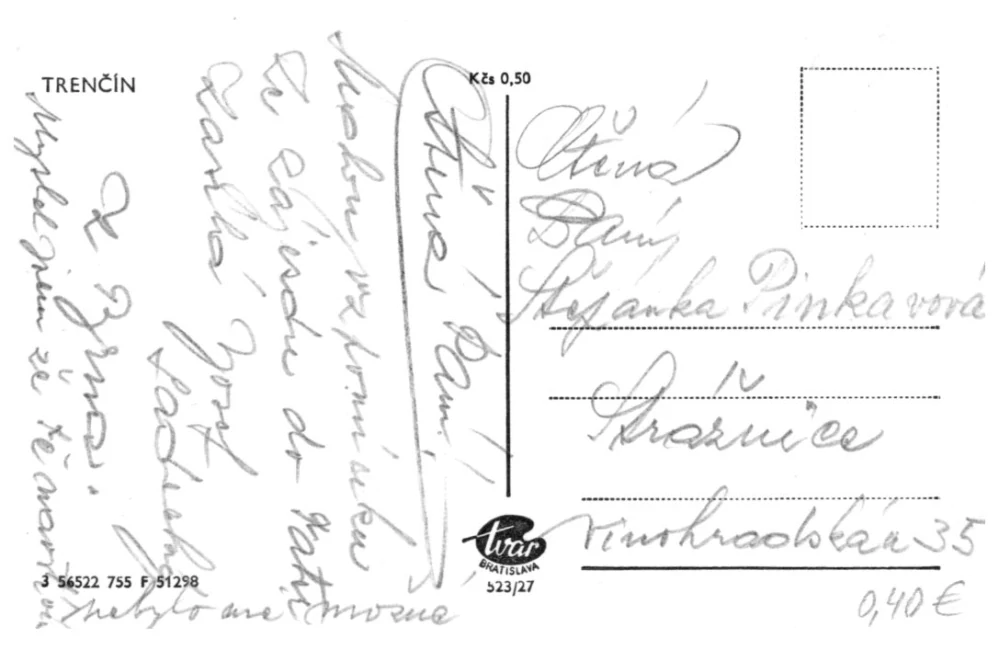 TRENČÍN
Kčs 0,50
Ctěná Paní!
Malou vzpomínku
ze zájezdu do Tater
zasílá Josef
z Brna.
Myslel jsem že tě navštívím
nebylo mě možné
Ctěná
Paní
Štěpánka Pinkavová
Strážnice
Vinohradská 35
tvar
BRATISLAVA
523/27
3 56522 755 F 51298
0,40 €